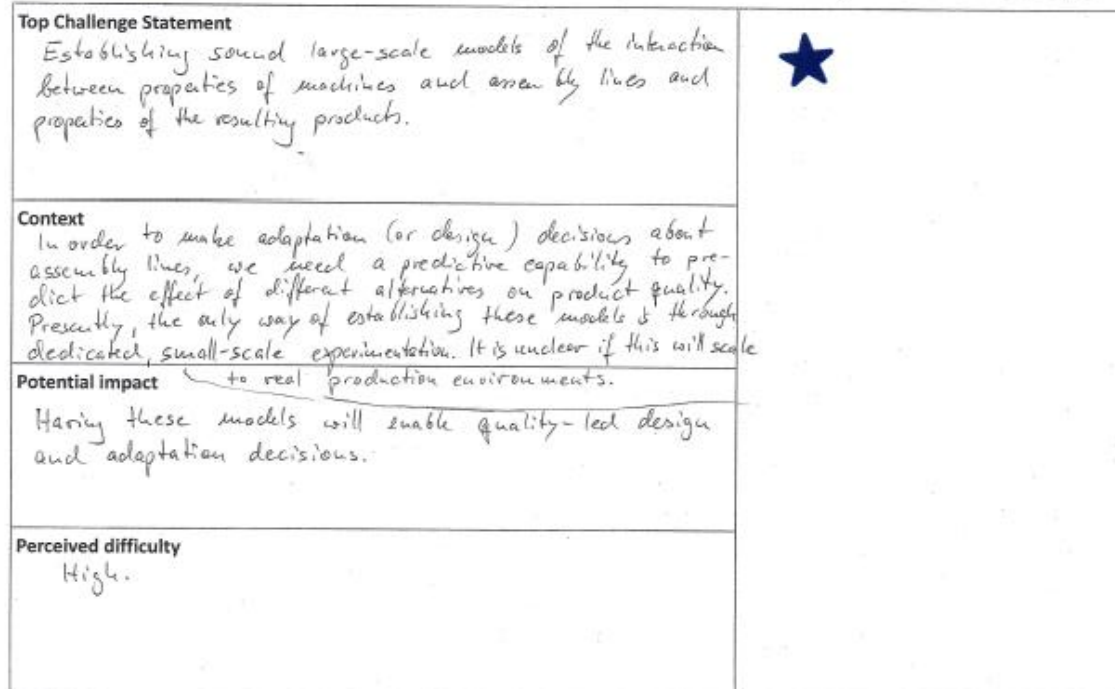 Top Challenge Statement
Establishing sound large-scale models of the interaction
between properties of machines and assembly lines and
properties of the resulting products.
Context
In order to make adaptation (or design) decisions about
assembly lines, we need a predictive capability to pre-
dict the effect of different alternatives on product quality.
Presently, the only way of establishing these models is through
dedicated, small-scale experimentation. It is unclear if this will scale
to real production environments.
Potential impact
Having these models will enable quality-led design
and adaptation decisions.
Perceived difficulty
High.